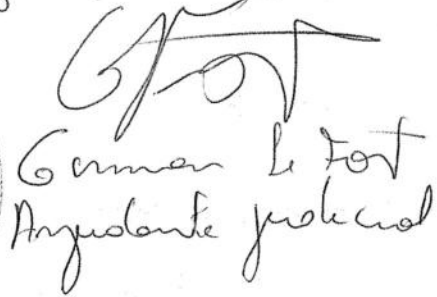 German Le Fort
Ayudante judicial